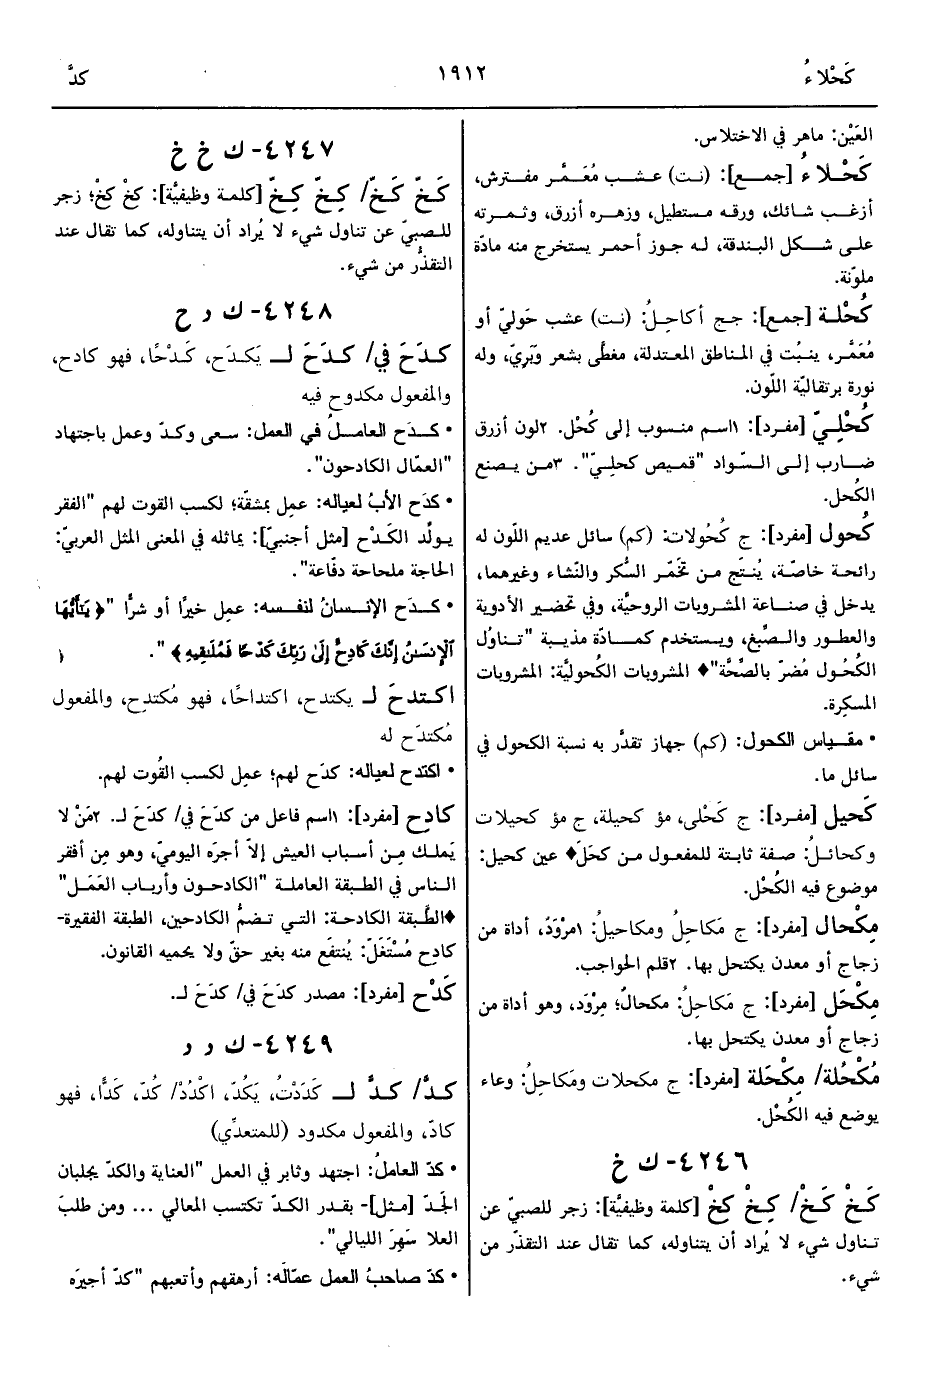 كَحْلاءُ
١٩١٢
كدَّ
العَيْن: ماهر في الاختلاس.
كَحْلاءُ [جمع]: (نت) عشب مُعَمَّر مفترش،
أزغب شائك، ورقه مستطيل، وزهره أزرق، وثمرته
على شكل البندقة، له جوز أحمر يستخرج منه مادّة
ملوّنة.
كُحْلة [جمع]: جج أكاحِلُ: (نت) عشب حَوليّ أو
مُعَمَّر، ينبُت في المناطق المعتدلة، مغطًّى بشعر وَبَريّ، وله
نورة برتقاليّة اللّون.
كُحْلِيّ [مفرد]: ١اسم منسوب إلى كُحْل. ٢لون أزرق
ضارب إلى السَّواد "قميص كحليّ". ٣من يصنع
الكُحل.
كُحول [مفرد]: ج كُحُولات: (كم) سائل عديم اللّون له
رائحة خاصّة، يُنتَج من تَخَمّر السُّكر والنَّشاء وغيرهما،
يدخل في صناعة المشروبات الروحيَّة، وفي تحضير الأدوية
والعطور والصِّبغ، ويستخدم كمادّة مذيبة "تناوُل
الكُحُول مُضرّ بالصِّحَّة"♦ المشروبات الكُحوليَّة: المشروبات
المسكِرة.
• مقياس الكحول: (كم) جهاز تقدَّر به نسبة الكحول في
سائل ما.
كَحيل [مفرد]: ج كَحْلى، مؤ كحيلة، ج مؤ كحيلات
وكحائلُ: صفة ثابتة للمفعول من كحَلَ♦ عين كحيل:
موضوع فيه الكُحْل.
مِكْحال [مفرد]: ج مَكاحِلُ ومكاحيلُ: ١مرْوَدٌ، أداة من
زجاج أو معدن يكتحل بها. ٢قلم الحواجب.
مِكْحَل [مفرد]: ج مَكاحِلُ: مكحالٌ؛ مِرْوَد، وهو أداة من
زجاج أو معدن يكتحل بها.
مُكْحُلة/ مِكْحَلة [مفرد]: ج مكحلات ومَكاحِلُ: وعاء
يوضع فيه الكُحْل.
٤٢٤٦- ك خ
كَخْ كَخْ/ كِخْ كِخْ [كلمة وظيفيَّة]: زجر للصبيّ عن
تناول شيء لا يُراد أن يتناوله، كما تقال عند التقذّر من
شيء.
٤٢٤٧- ك خ خ
كَخّ كَخّ/ كِخّ كِخّ [كلمة وظيفيَّة]: كِخْ كِخْ؛ زجر
للصبيّ عن تناول شيء لا يُراد أن يتناوله، كما تقال عند
التقذُّر من شيء.
٤٢٤٨- ك د ح
كدَحَ في/ كدَحَ لـ يَكدَح، كَدْحًا، فهو كادح،
والمفعول مكدوح فيه
• كدَح العاملُ في العمل: سعى وكدّ وعمل باجتهاد
"العمّال الكادحون".
• كدَح الأبُ لعياله: عمِل بمشقّة؛ لكسب القوت لهم "الفقر
يولِّد الكَدْح [مثل أجنبيّ]: يماثله في المعنى المثل العربيّ:
الحاجة ملحاحة دفّاعة".
• كدَح الإنسانُ لنفسه: عمِل خيرًا أو شرًّا "﴿ يَٰٓأَيُّهَا
ٱلْإِنسَٰنُ إِنَّكَ كَادِحٌ إِلَىٰ رَبِّكَ كَدْحًا فَمُلَٰقِيهِ ﴾ ".
اكتدحَ لـ يكتدح، اكتداحًا، فهو مُكتدِح، والمفعول
مُكتدَح له
• اكتدح لعياله: كدَح لهم؛ عمِل لكسب القُوت لهم.
كادِح [مفرد]: ١اسم فاعل من كدَحَ في/ كدَحَ لـ. ٢مَنْ لا
يَملك مِن أسباب العيش إلاّ أجرَه اليوميّ، وهو مِن أفقر
الناس في الطبقة العاملة "الكادحون وأرباب العَمَل"
♦الطَّبقة الكادحة: التي تضمُّ الكادحين، الطبقة الفقيرة-
كادِح مُسْتَغَلّ: يُنتفَع منه بغير حقّ ولا يحميه القانون.
كَدْح [مفرد]: مصدر كدَحَ في/ كدَحَ لـ.
٤٢٤٩- ك د د
كدَّ/ كدَّ لـ كَدَدْتُ، يَكُدّ، اكْدُدْ/ كُدّ، كَدًّا، فهو
كادّ، والمفعول مكدود (للمتعدِّي)
• كدّ العاملُ: اجتهد وثابر في العمل "العناية والكدّ يجلبان
الجَدّ [مثل]- بقدر الكدّ تكتسب المعالي ... ومن طلبَ
العلا سَهِرَ الليالي".
• كدّ صاحبُ العمل عمّالَه: أرهقهم وأتعبهم "كدّ أجيرَه